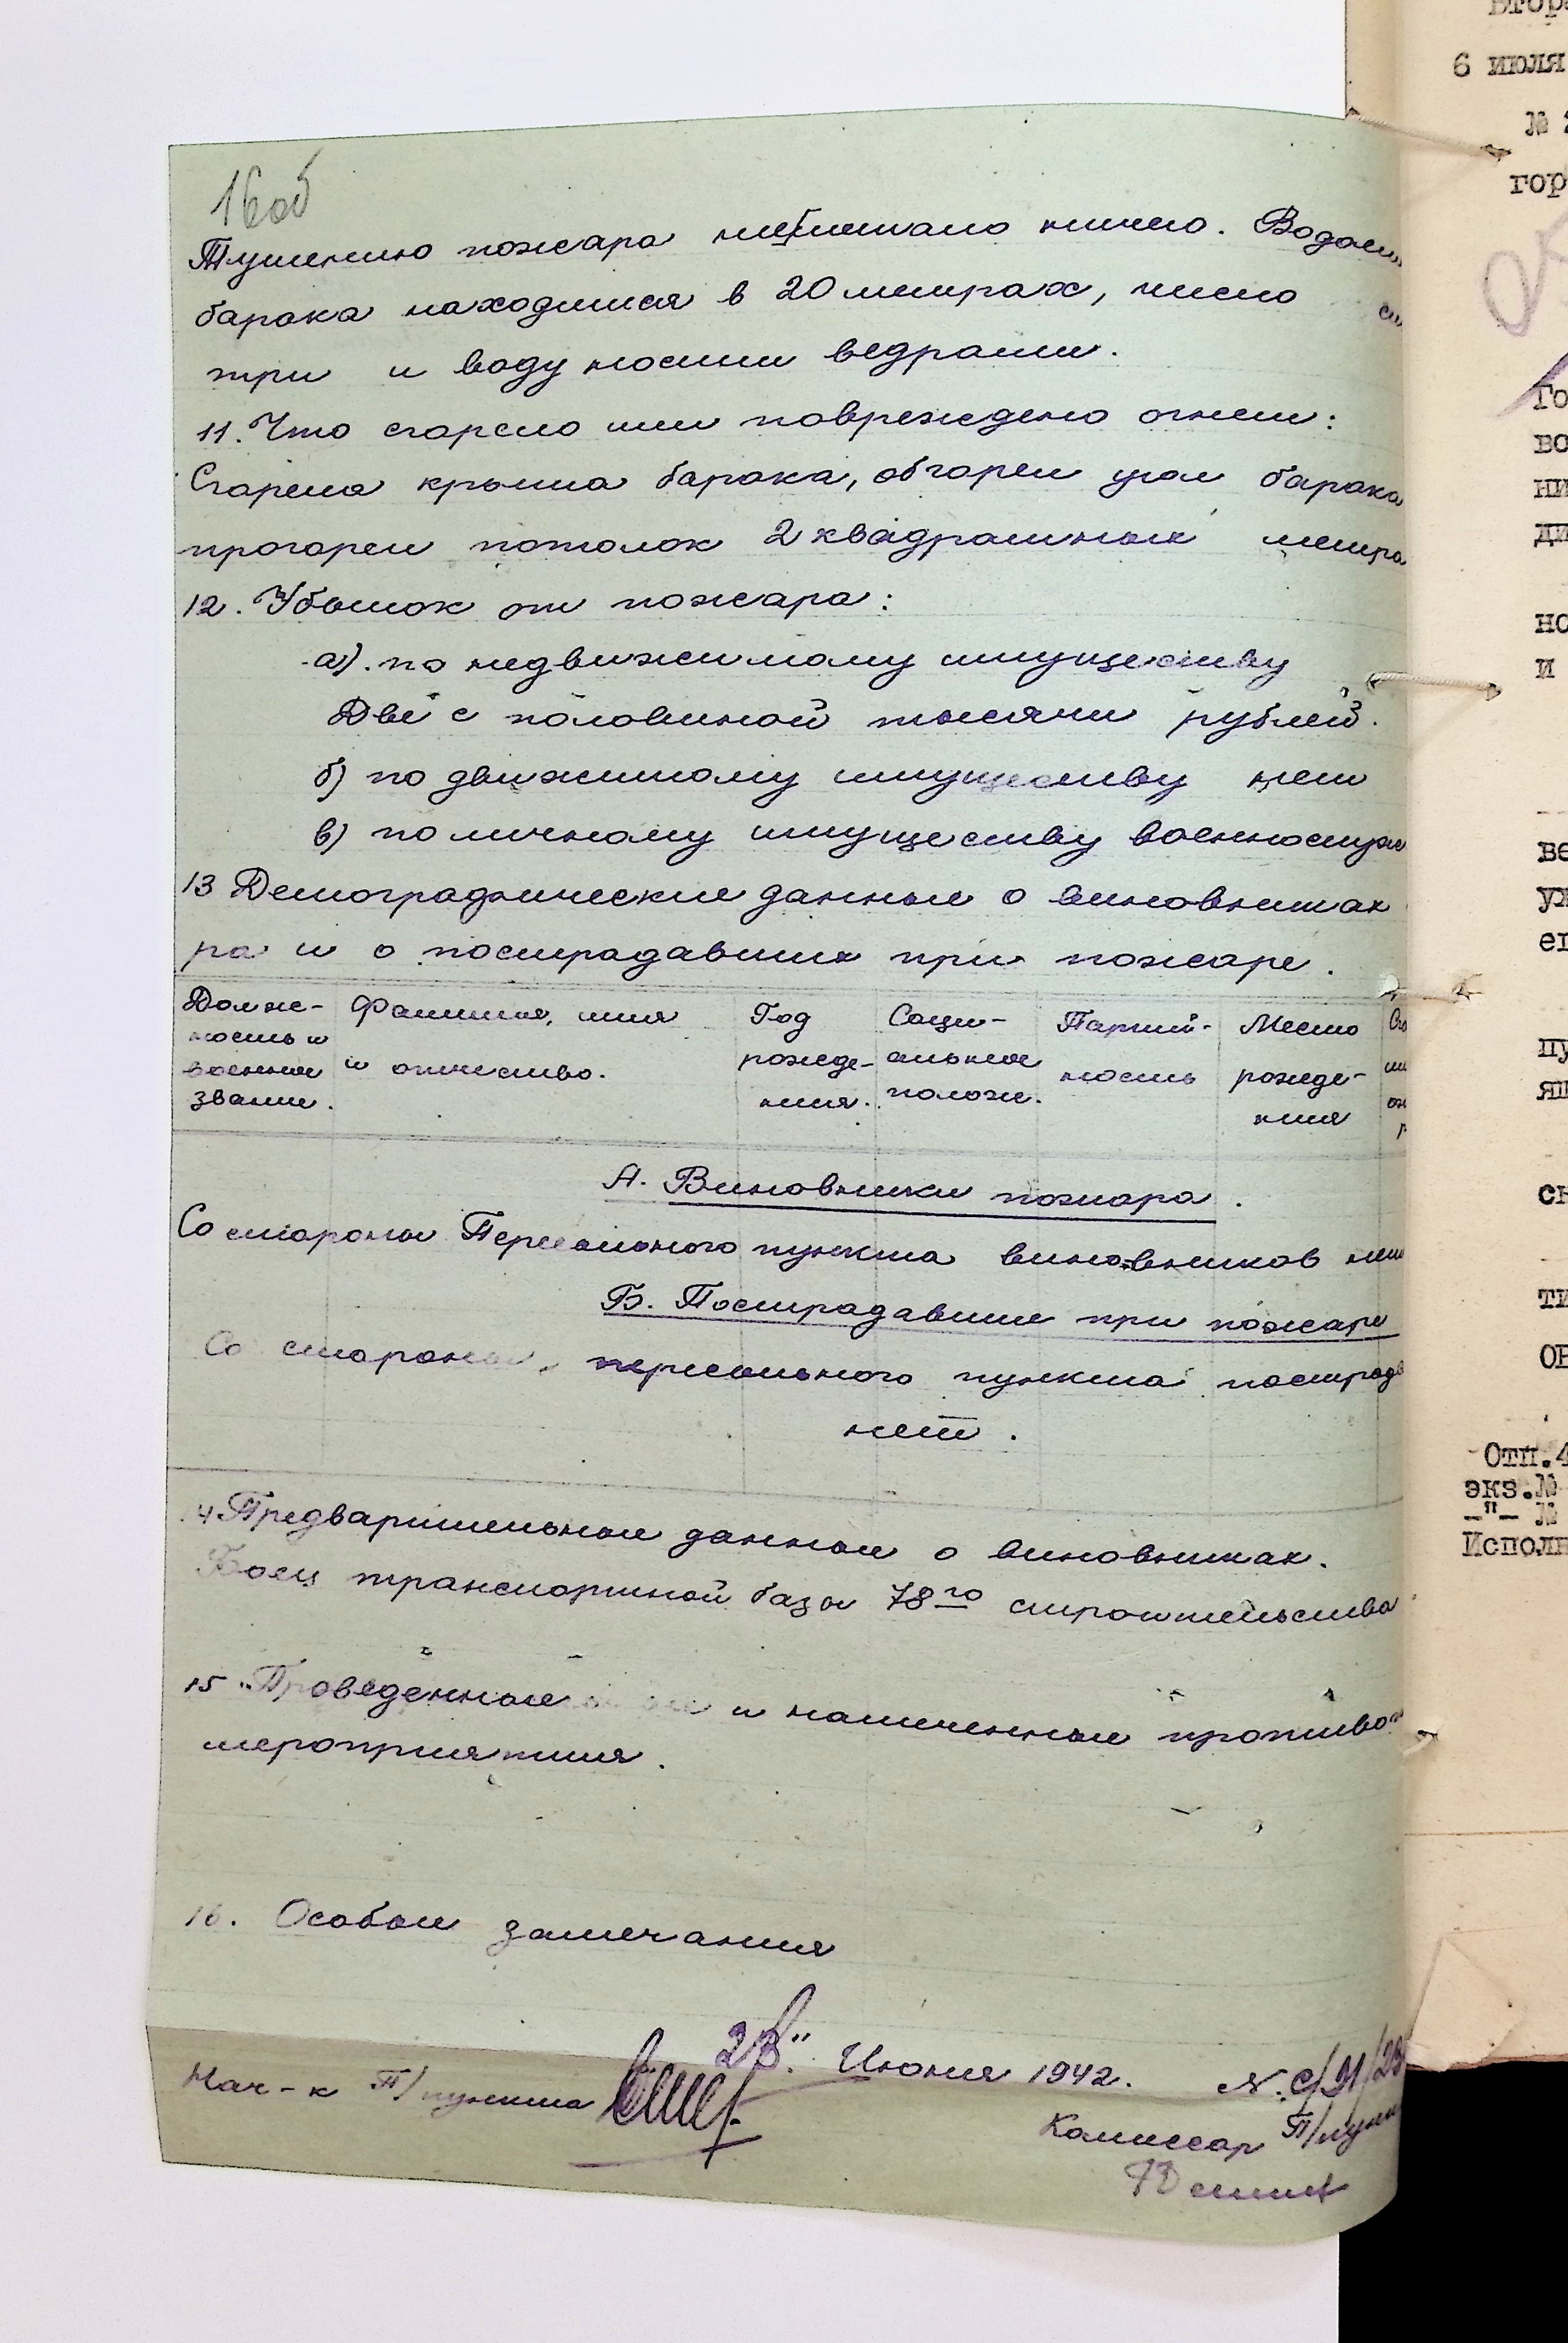 16 об
Тушению пожара не мешало ничего. Водоем
барака находился в 20 метрах, число
три и воду носили ведрами.
11. Что сгорело или повреждено огнем:
Сгорела крыша барака, обгорел угол барака
прогорел потолок 2 квадратных метра
12. Убыток от пожара:
а). по недвижимому имуществу
Две с половиной тысячи рублей.
б) по движимому имуществу нет
в) по личному имуществу военнослуж
13 Демографические данные о виновниках
ра и о пострадавших при пожаре.
Долж- Фамилия, имя Год Соци- Партий- Место
ность и и отчество. рожде- альное ность рожде-
военное ния. полож. ния
звание.
А. Виновники пожара.
Со стороны Пересыльного пункта виновников нет
Б. Пострадавшие при пожаре
Со стороны пересыльного пункта пострада
нет.
14 Предварительные данные о виновниках.
Боец транспортной базы 78го строительства
15 Проведенные и намеченные противо
мероприятия.
16. Особые замечания
23" Июня 1942. №
Нач-к П/пункта
Комиссар П/пун
6 июля
№
гор
Го
во
ни
ди
но
и
ве
уж
ег
пу
яв
сн
ти
ОР
Отп.4
экз.№
-"- №
Исполн